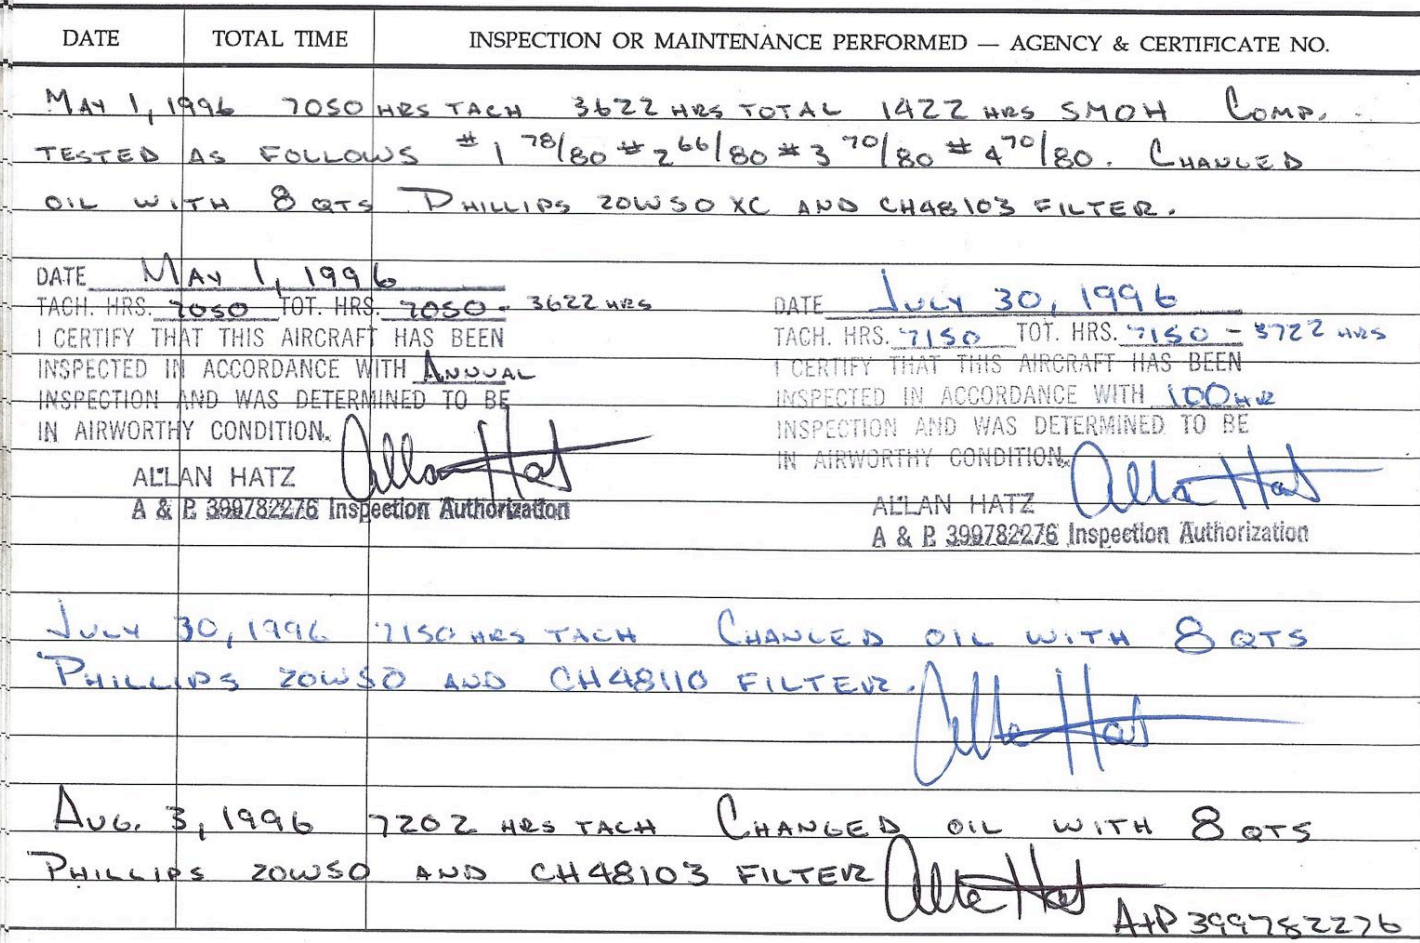 DATE TOTAL TIME INSPECTION OR MAINTENANCE PERFORMED — AGENCY & CERTIFICATE NO.
MAY 1, 1996 7050 HRS TACH 3622 HRS TOTAL 1422 HRS SMOH COMP.
TESTED AS FOLLOWS #1 78/80 #2 66/80 #3 70/80 #4 70/80. CHANGED
OIL WITH 8 QTS PHILLIPS 20W50 XC AND CH48103 FILTER.
DATE MAY 1, 1996
TACH. HRS. 7050 TOT. HRS. 7050 - 3622 HRS
I CERTIFY THAT THIS AIRCRAFT HAS BEEN
INSPECTED IN ACCORDANCE WITH ANNUAL
INSPECTION AND WAS DETERMINED TO BE
IN AIRWORTHY CONDITION. Allan Hatz
ALLAN HATZ
A & P. 399782276 Inspection Authorization
DATE JULY 30, 1996
TACH. HRS. 7150 TOT. HRS. 7150 - 3722 HRS
I CERTIFY THAT THIS AIRCRAFT HAS BEEN
INSPECTED IN ACCORDANCE WITH 100 HR
INSPECTION AND WAS DETERMINED TO BE
IN AIRWORTHY CONDITION. Allan Hatz
ALLAN HATZ
A & P. 399782276 Inspection Authorization
JULY 30, 1996 7150 HRS TACH CHANGED OIL WITH 8 QTS
PHILLIPS 20W50 AND CH48110 FILTER. Allan Hatz
AUG. 3, 1996 7202 HRS TACH CHANGED OIL WITH 8 QTS
PHILLIPS 20W50 AND CH48103 FILTER Allan Hatz
A+P 399782276